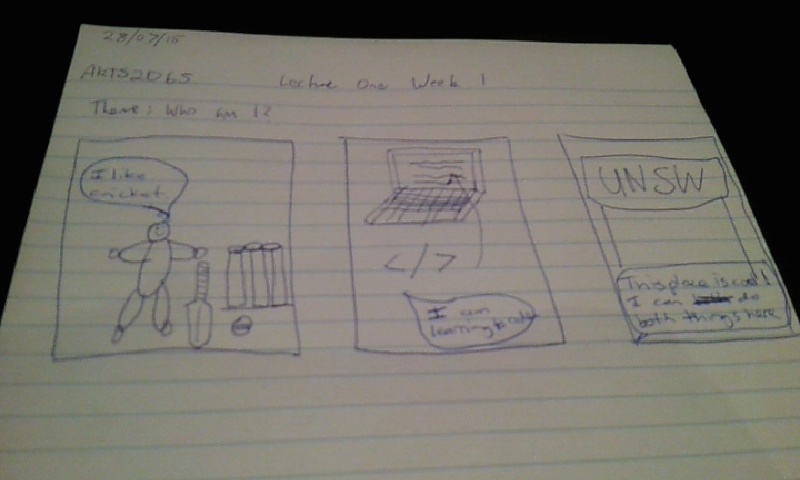 28/07/15
ARTS2065 Lecture One Week 1
Theme: Who am I?
I like
cricket.
</>
I am
learning to code
UNSW
This place is cool!
I can do
both things here